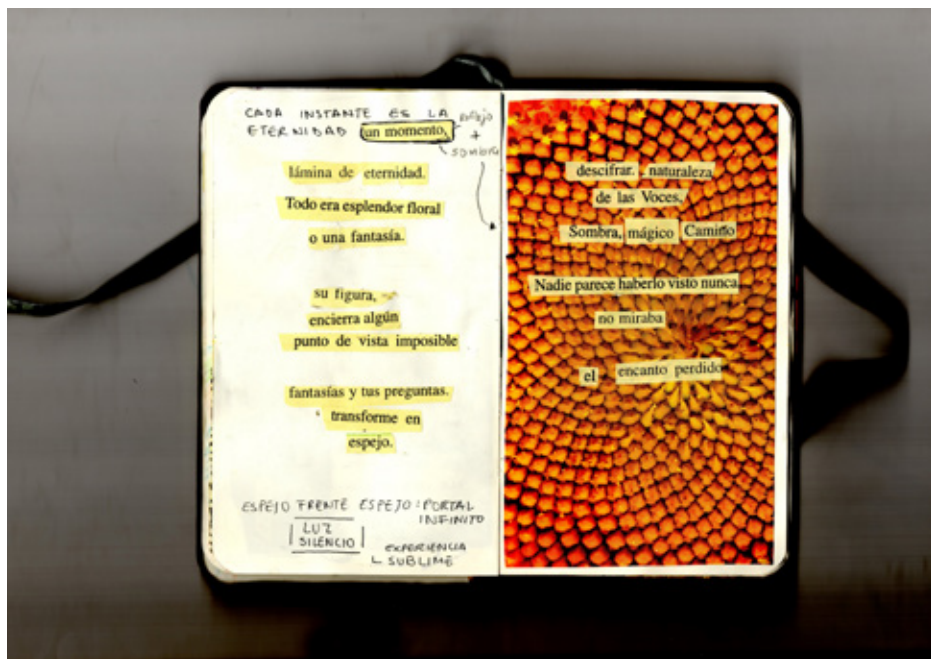 CADA INSTANTE ES LA
ETERNIDAD un momento,
reflejo
+
sombra
lámina de eternidad.
Todo era esplendor floral
o una fantasía.
su figura,
encierra algún
punto de vista imposible
fantasías y tus preguntas.
transforme en
espejo.
ESPEJO FRENTE ESPEJO: PORTAL
INFINITO
LUZ
SILENCIO
EXPERIENCIA
SUBLIME
descifrar. naturaleza,
de las Voces,
Sombra, mágico Camino
Nadie parece haberlo visto nunca.
no miraba
el encanto perdido